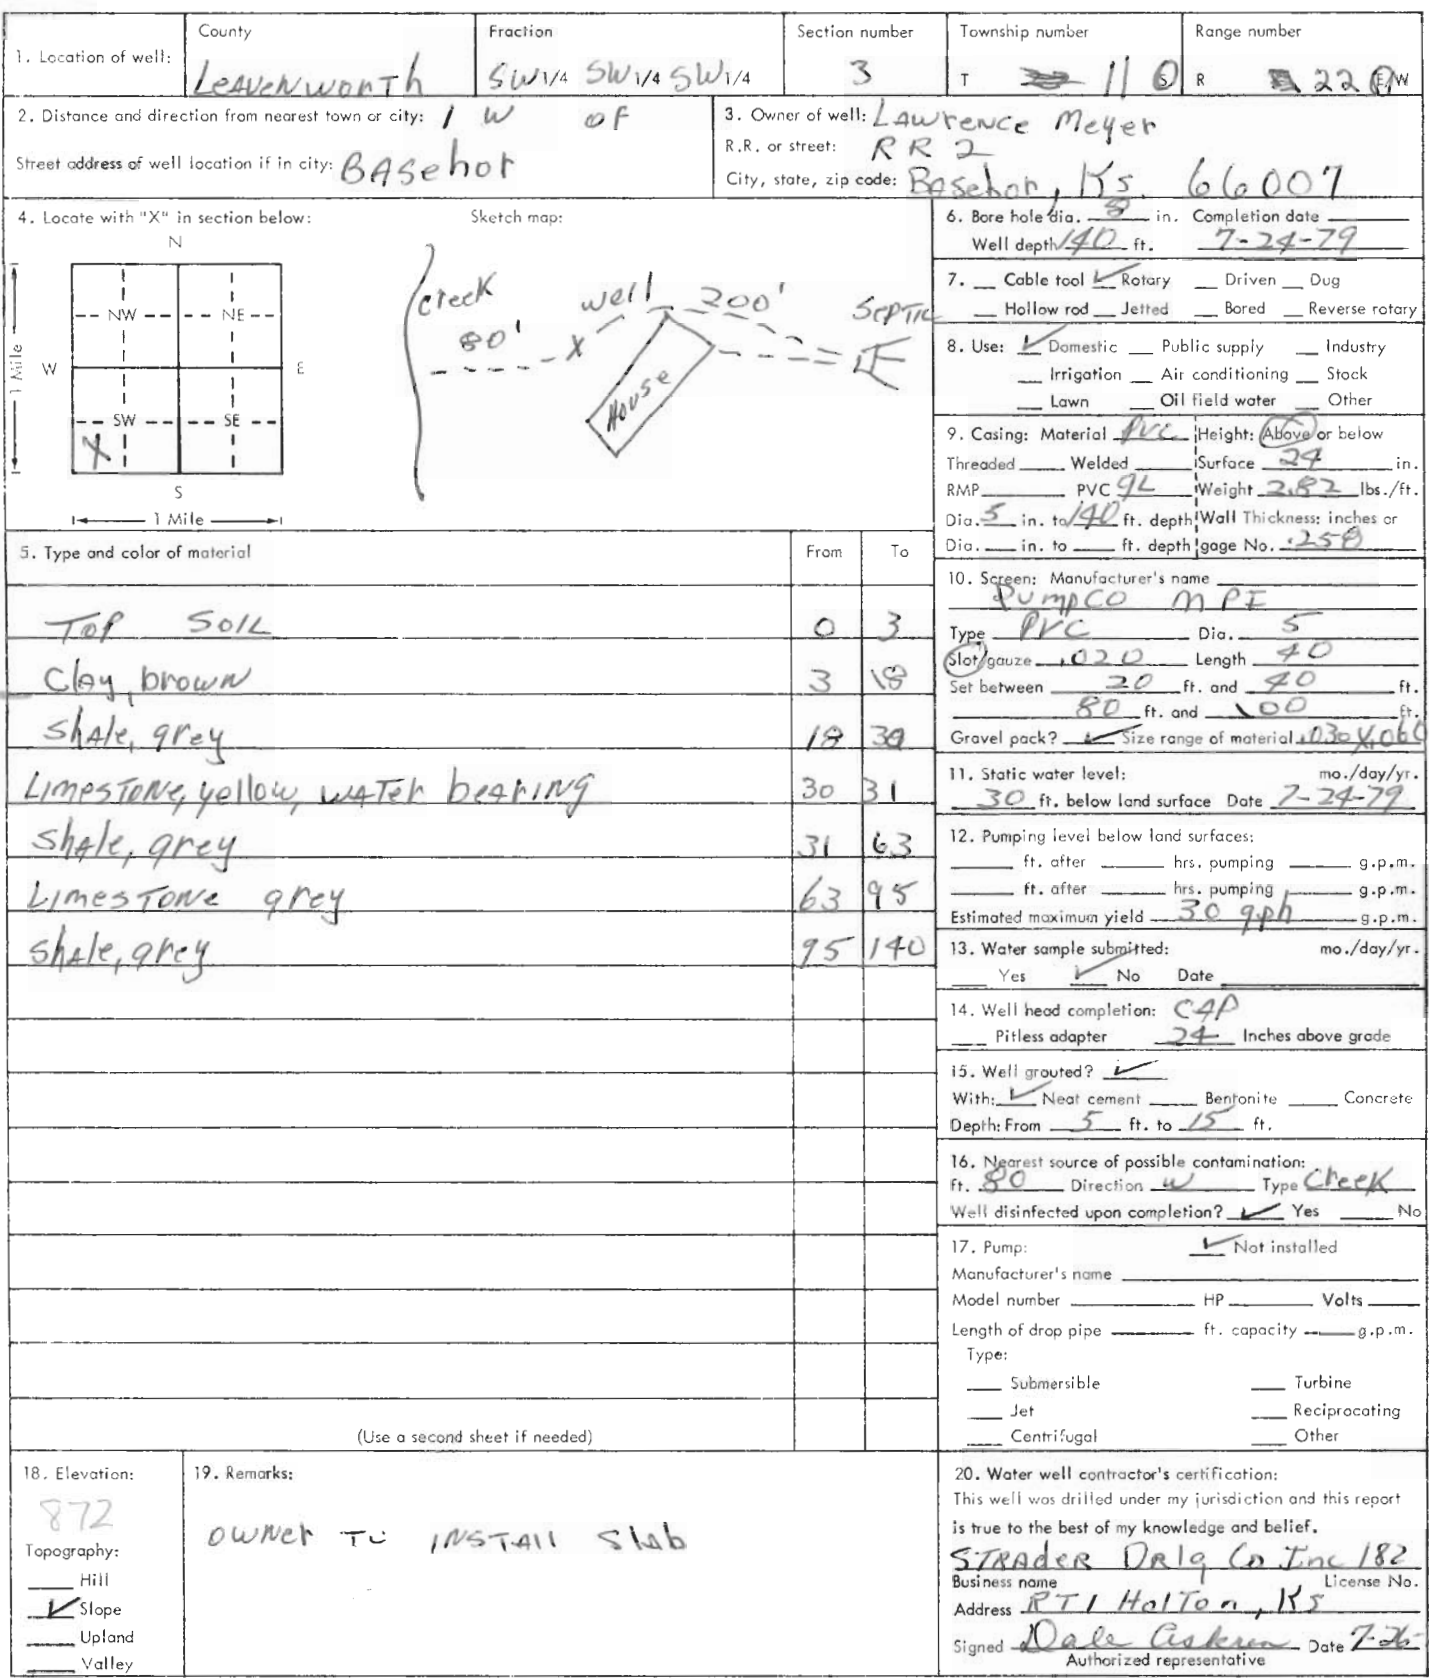 1. Location of well: County LEAVENWORTH Fraction SW 1/4 SW 1/4 SW 1/4 Section number 3 Township number T 11 S Range number R 22 E/W
2. Distance and direction from nearest town or city: 1 W OF
Street address of well location if in city: BASehor
3. Owner of well: LAWrence Meyer
R.R. or street: RR 2
City, state, zip code: BASehor, Ks. 66007
4. Locate with "X" in section below:
N
NW NE
W E
SW SE
X
S
1 Mile
1 Mile
Sketch map:
creek
80'
X
well
200'
SEPTIC
House
5. Type and color of material From To
TOP SOIL 0 3
Clay, brown 3 18
ShAle, grey 18 30
LimesTONe, yellow, WATer beAriNg 30 31
ShAle, grey 31 63
LimesTONe grey 63 95
ShAle, grey 95 140
(Use a second sheet if needed)
6. Bore hole dia. 8 in. Completion date
Well depth 140 ft. 7-24-79
7. Cable tool ✓ Rotary Driven Dug
Hollow rod Jetted Bored Reverse rotary
8. Use: ✓ Domestic Public supply Industry
Irrigation Air conditioning Stock
Lawn Oil field water Other
9. Casing: Material PVC Height: Above or below
Threaded Welded Surface 24 in.
RMP PVC GL Weight 2.82 lbs./ft.
Dia. 5 in. to 140 ft. depth Wall Thickness: inches or
Dia. in. to ft. depth gage No. .258
10. Screen: Manufacturer's name
PUMPCO
Type PVC Dia. 5
Slot/gauze .020 Length 40
Set between 20 ft. and 40 ft.
80 ft. and 100 ft.
Gravel pack? ✓ Size range of material .030 X .060
11. Static water level: mo./day/yr.
30 ft. below land surface Date 7-24-79
12. Pumping level below land surfaces:
ft. after hrs. pumping g.p.m.
ft. after hrs. pumping g.p.m.
Estimated maximum yield 30 gph g.p.m.
13. Water sample submitted: mo./day/yr.
Yes ✓ No Date
14. Well head completion: CAP
Pitless adapter 24 Inches above grade
15. Well grouted? ✓
With: ✓ Neat cement Bentonite Concrete
Depth: From 5 ft. to 15 ft.
16. Nearest source of possible contamination:
ft. 80 Direction W Type CreeK
Well disinfected upon completion? ✓ Yes No
17. Pump: ✓ Not installed
Manufacturer's name
Model number HP Volts
Length of drop pipe ft. capacity g.p.m.
Type:
Submersible Turbine
Jet Reciprocating
Centrifugal Other
18. Elevation:
872
Topography:
Hill
✓ Slope
Upland
Valley
19. Remarks:
OWNer TO INSTAll SlAb
20. Water well contractor's certification:
This well was drilled under my jurisdiction and this report
is true to the best of my knowledge and belief.
STRADER DRlg Co Inc 182
Business name License No.
Address RT 1 HolTon, KS
Signed Dale Askren Date 7-26-
Authorized representative